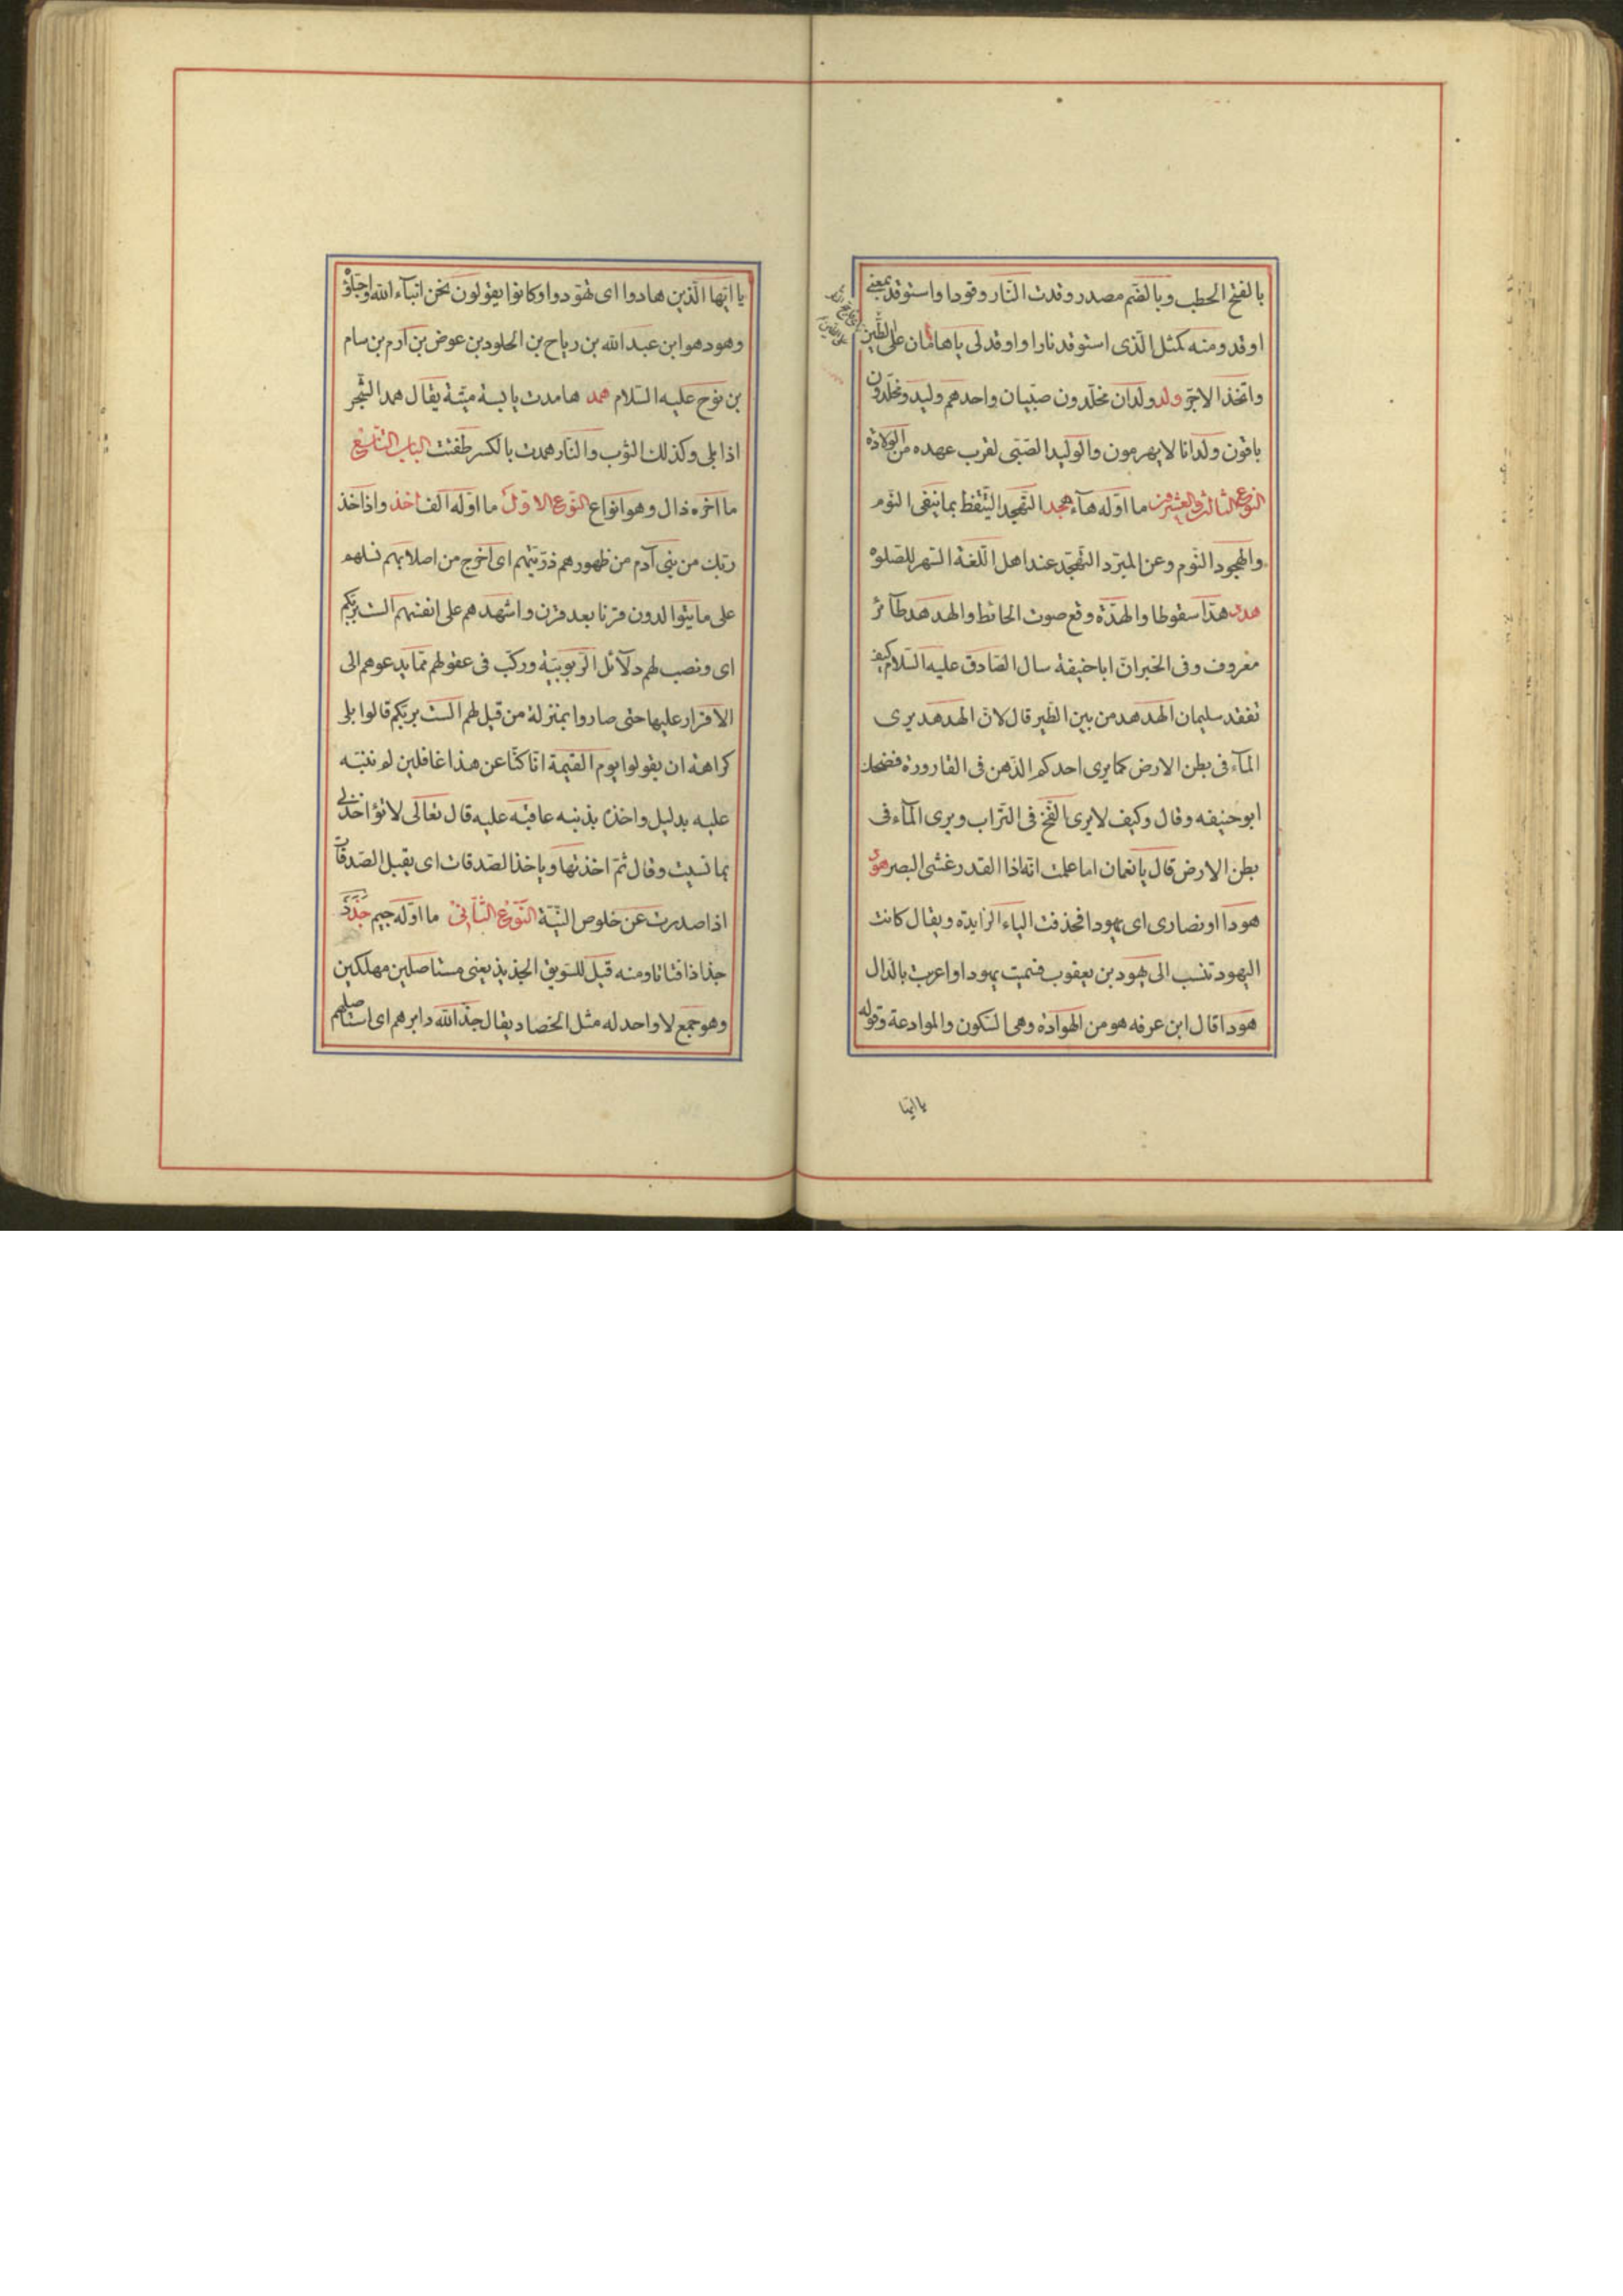 بالفتح الحطب وبالضم مصدر وقدت النار وقودا واستوقد بمعنى
اوقد ومنه كمثل الذى استوقد نارا واوقد لى ياهامان على الطين
واتخذ الاجر ولد ولدان مخلدون صبيان واحدهم وليد ومخلدون
باقون ولدانا لا يهرمون والوليد الصبى لقرب عهده من الولادة
النوع الثالث والعشرون ما اوله هآء هجد التهجد التيقظ بما ينفى النوم
والهجود النوم وعن المبرد التهجد عند اهل اللغة السهر للصلوة
هدد هدا سقوطا والهدة وقع صوت الحائط والهدهد طآئر
معروف وفى الخبر ان اباحنيفة سال الصادق عليه السلام كيف
تفقد سليمان الهدهد من بين الطير قال لان الهدهد يرى
المآء فى بطن الارض كما يرى احدكم الدهن فى القارورة فضحك
ابوحنيفه وقال وكيف لا يرى الفخ فى التراب ويرى المآء فى
بطن الارض قال يانعمان اما علمت انه اذا القدر غشى البصر هود
هودا او نصارى اى يهودا فحذفت الياء الزايدة ويقال كانت
اليهود تنسب الى يهود بن يعقوب فسميت يهودا واعربت بالدال
هودا قال ابن عرفه هو من الهوادة وهى السكون والموادعة وقوله
يا ايها
يا ايها الذين هادوا اى تهودوا وكانوا يقولون نحن ابنآء الله واحباؤه
وهود هو ابن عبد الله بن رباح بن الخلود بن عوض بن آرم بن سام
بن نوح عليه السلام همد هامدت يابسة ميتة يقال همد الشجر
اذا بلى وكذلك الثوب والنار همدت بالكسر طفئت الباب التاسع
ما اخره ذال وهو انواع النوع الاول ما اوله الف اخذ واذ اخذ
ربك من بنى آدم من ظهورهم ذريتهم اى اخرج من اصلابهم نسلهم
على ما يتوالدون قرنا بعد قرن واشهدهم على انفسهم الست بربكم
اى ونصب لهم دلآئل الربوبية وركب فى عقولهم ما يدعوهم الى
الاقرار عليها حتى صاروا بمنزلة من قيل لهم الست بربكم قالوا بلى
كراهة ان يقولوا يوم القيمة انا كنا عن هذا غافلين لم ننبه
عليه بدليل واخذه بذنبه عاقبه عليه قال تعالى لا تؤاخذنى
بما نسيت وقال ثم اخذتها وياخذ الصدقات اى يقبل الصدقات
اذا صدرت عن خلوص النية النوع الثانى ما اوله جيم جذذ
جذاذا فتاتا ومنه قيل للسويق الجذيذ يعنى مستاصلين مهلكين
وهو جمع لا واحد له مثل الحصاد يقال جذ الله دابرهم اى استاصلهم